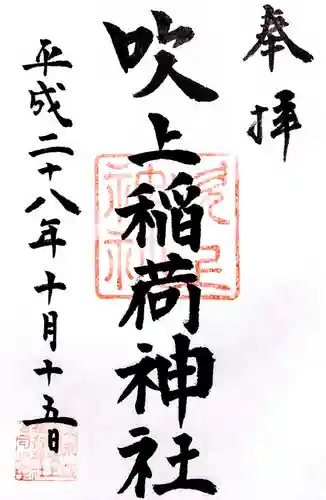 奉拝
吹上稲荷神社
平成二十八年十月十五日